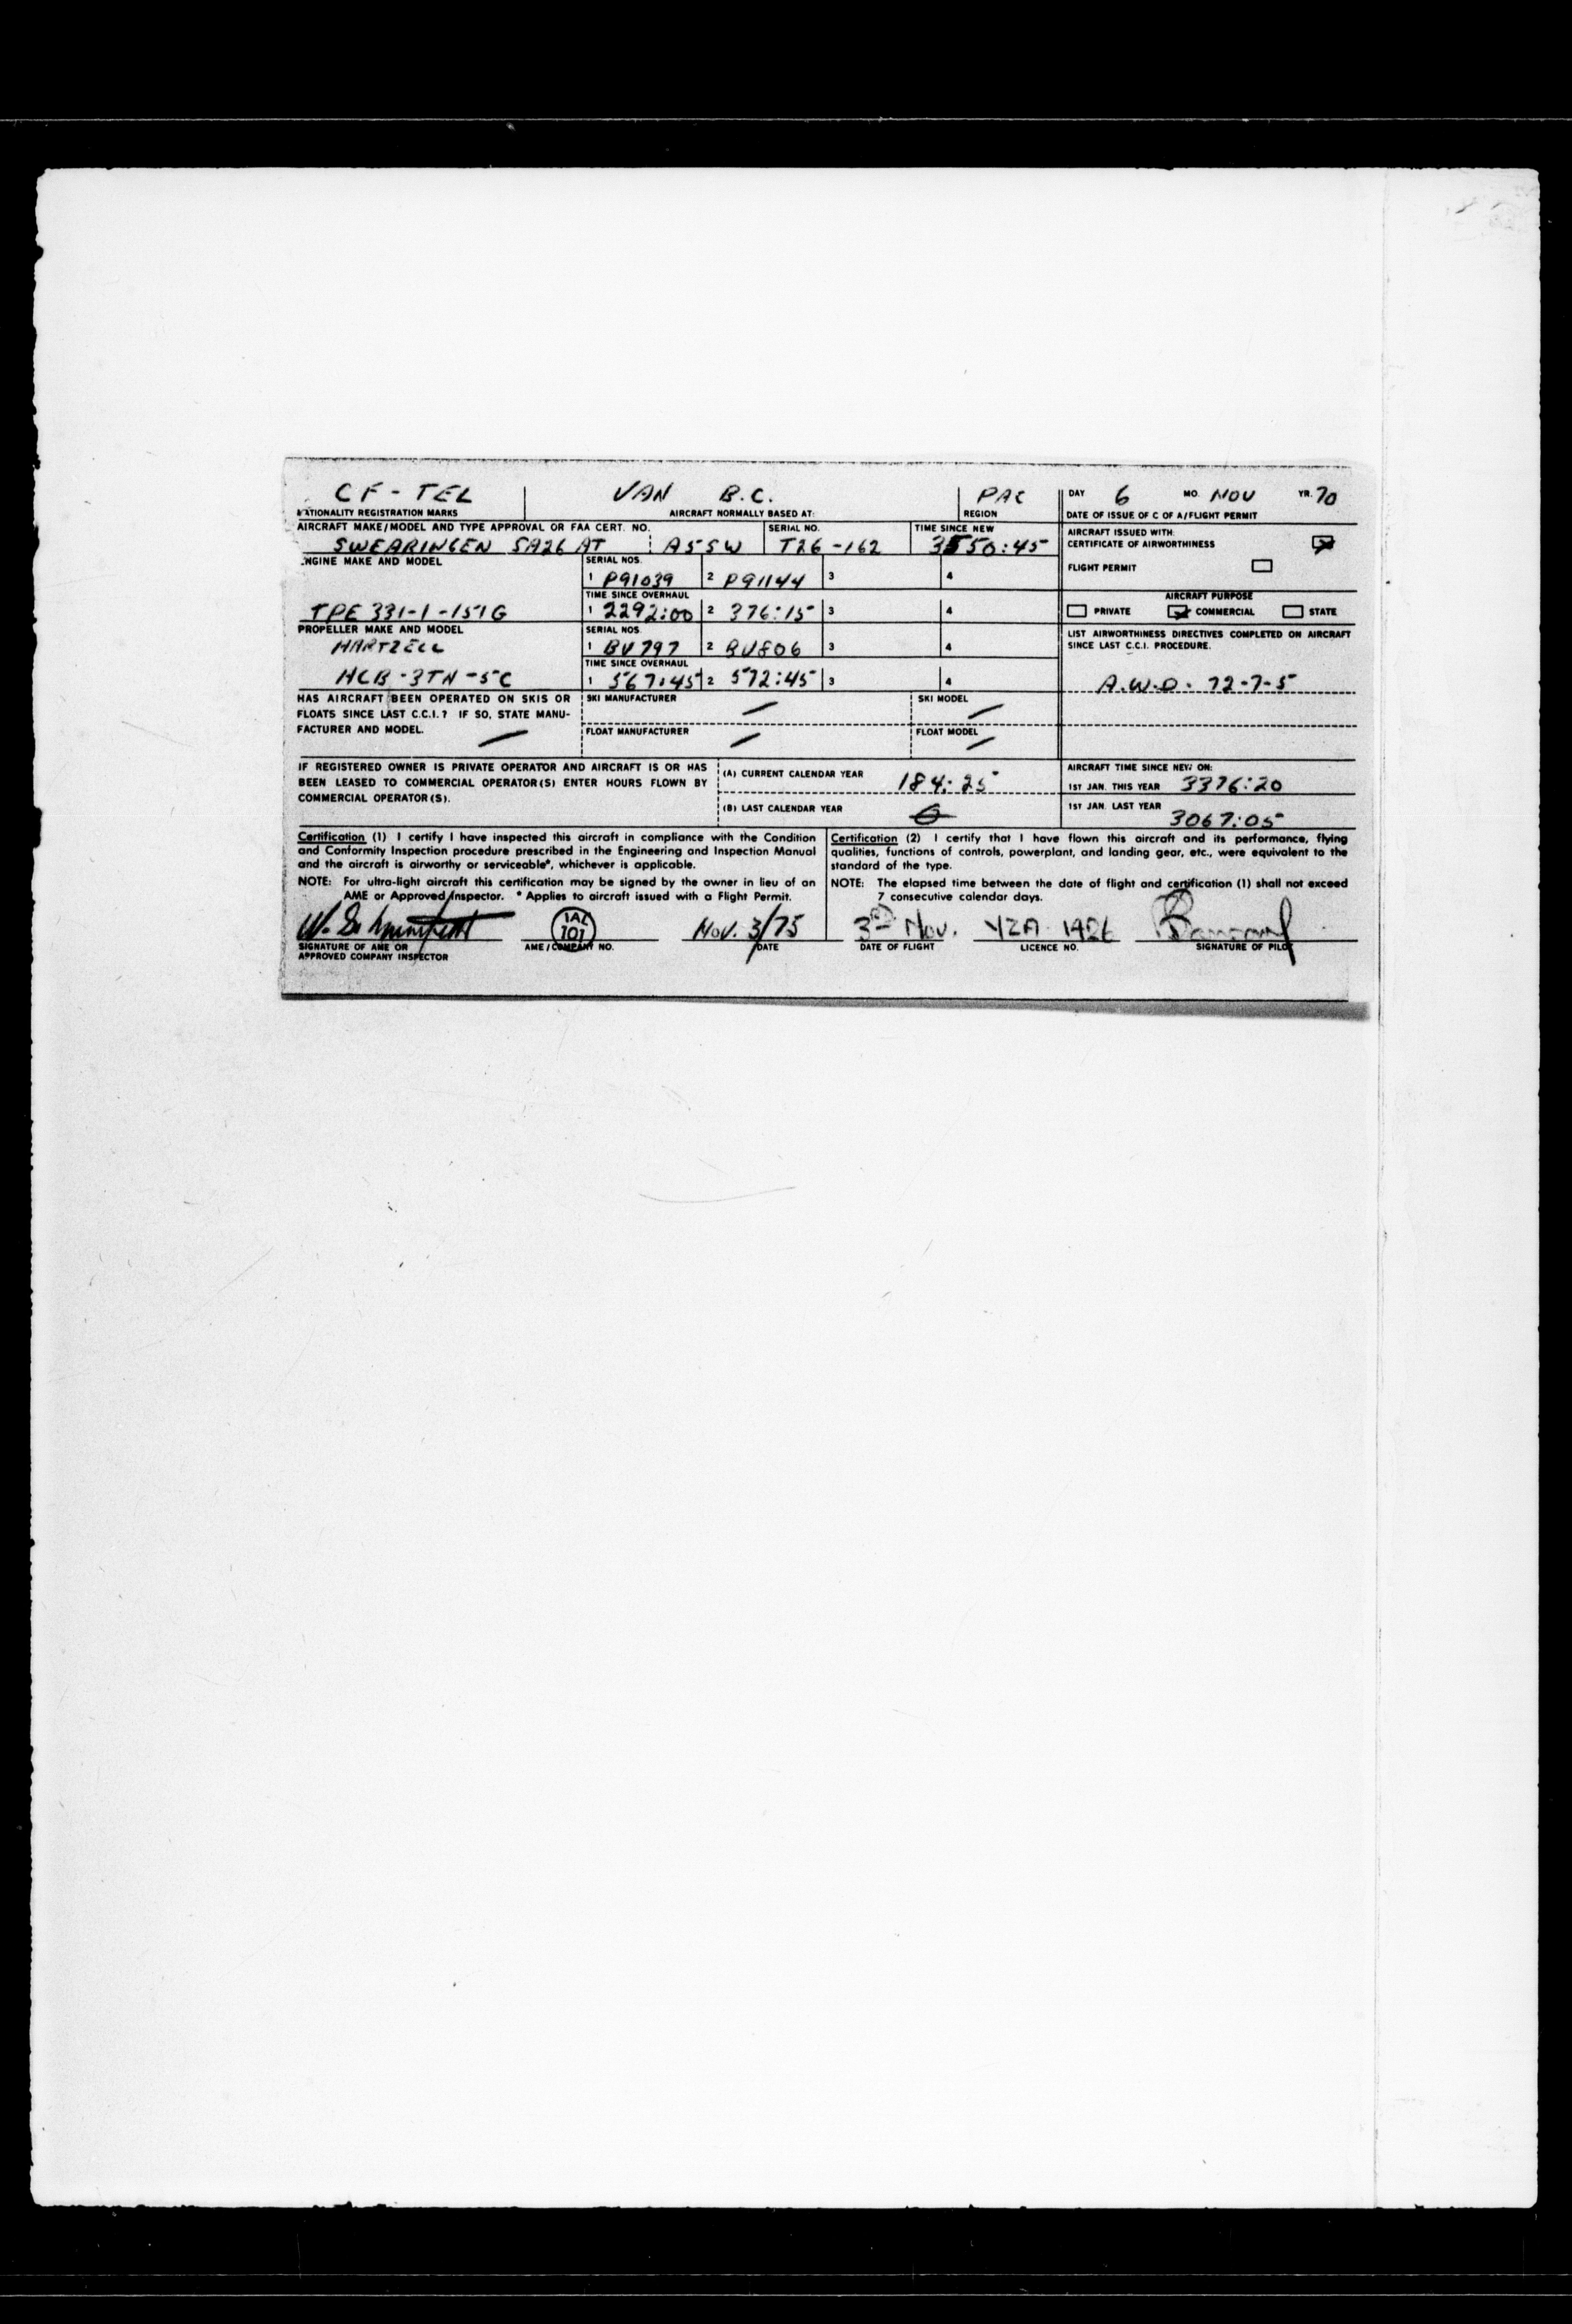 CF-TEL VAN B.C. PAC DAY 6 MO. NOV YR. 70
NATIONALITY REGISTRATION MARKS AIRCRAFT NORMALLY BASED AT: REGION DATE OF ISSUE OF C OF A/FLIGHT PERMIT
AIRCRAFT MAKE/MODEL AND TYPE APPROVAL OR FAA CERT. NO. SERIAL NO. TIME SINCE NEW
SWEARINGEN SA26 AT A5SW T26-162 3550:45
AIRCRAFT ISSUED WITH:
CERTIFICATE OF AIRWORTHINESS
FLIGHT PERMIT
ENGINE MAKE AND MODEL SERIAL NOS.
1 P91039 2 P91144 3 4
TIME SINCE OVERHAUL
TPE 331-1-151G 1 2292:00 2 376:15 3 4
AIRCRAFT PURPOSE
PRIVATE COMMERCIAL STATE
PROPELLER MAKE AND MODEL SERIAL NOS.
HARTZELL 1 BV797 2 BV806 3 4
TIME SINCE OVERHAUL
HCB-3TN-5C 1 567:45 2 572:45 3 4
LIST AIRWORTHINESS DIRECTIVES COMPLETED ON AIRCRAFT
SINCE LAST C.C.I. PROCEDURE.
A.W.D. 72-7-5
HAS AIRCRAFT BEEN OPERATED ON SKIS OR
FLOATS SINCE LAST C.C.I.? IF SO, STATE MANU-
FACTURER AND MODEL.
SKI MANUFACTURER SKI MODEL
FLOAT MANUFACTURER FLOAT MODEL
IF REGISTERED OWNER IS PRIVATE OPERATOR AND AIRCRAFT IS OR HAS
BEEN LEASED TO COMMERCIAL OPERATOR(S) ENTER HOURS FLOWN BY
COMMERCIAL OPERATOR(S).
(A) CURRENT CALENDAR YEAR 184:25
(B) LAST CALENDAR YEAR
AIRCRAFT TIME SINCE NEW ON:
1ST JAN. THIS YEAR 3376:20
1ST JAN. LAST YEAR
3067:05
Certification (1) I certify I have inspected this aircraft in compliance with the Condition
and Conformity Inspection procedure prescribed in the Engineering and Inspection Manual
and the aircraft is airworthy or serviceable*, whichever is applicable.
NOTE: For ultra-light aircraft this certification may be signed by the owner in lieu of an
AME or Approved Inspector. * Applies to aircraft issued with a Flight Permit.
Certification (2) I certify that I have flown this aircraft and its performance, flying
qualities, functions of controls, powerplant, and landing gear, etc., were equivalent to the
standard of the type.
NOTE: The elapsed time between the date of flight and certification (1) shall not exceed
7 consecutive calendar days.
IAL
101 Nov. 3/75 3rd Nov. YZA 1426
SIGNATURE OF AME OR
APPROVED COMPANY INSPECTOR
AME/COMPANY NO. DATE DATE OF FLIGHT LICENCE NO. SIGNATURE OF PILOT